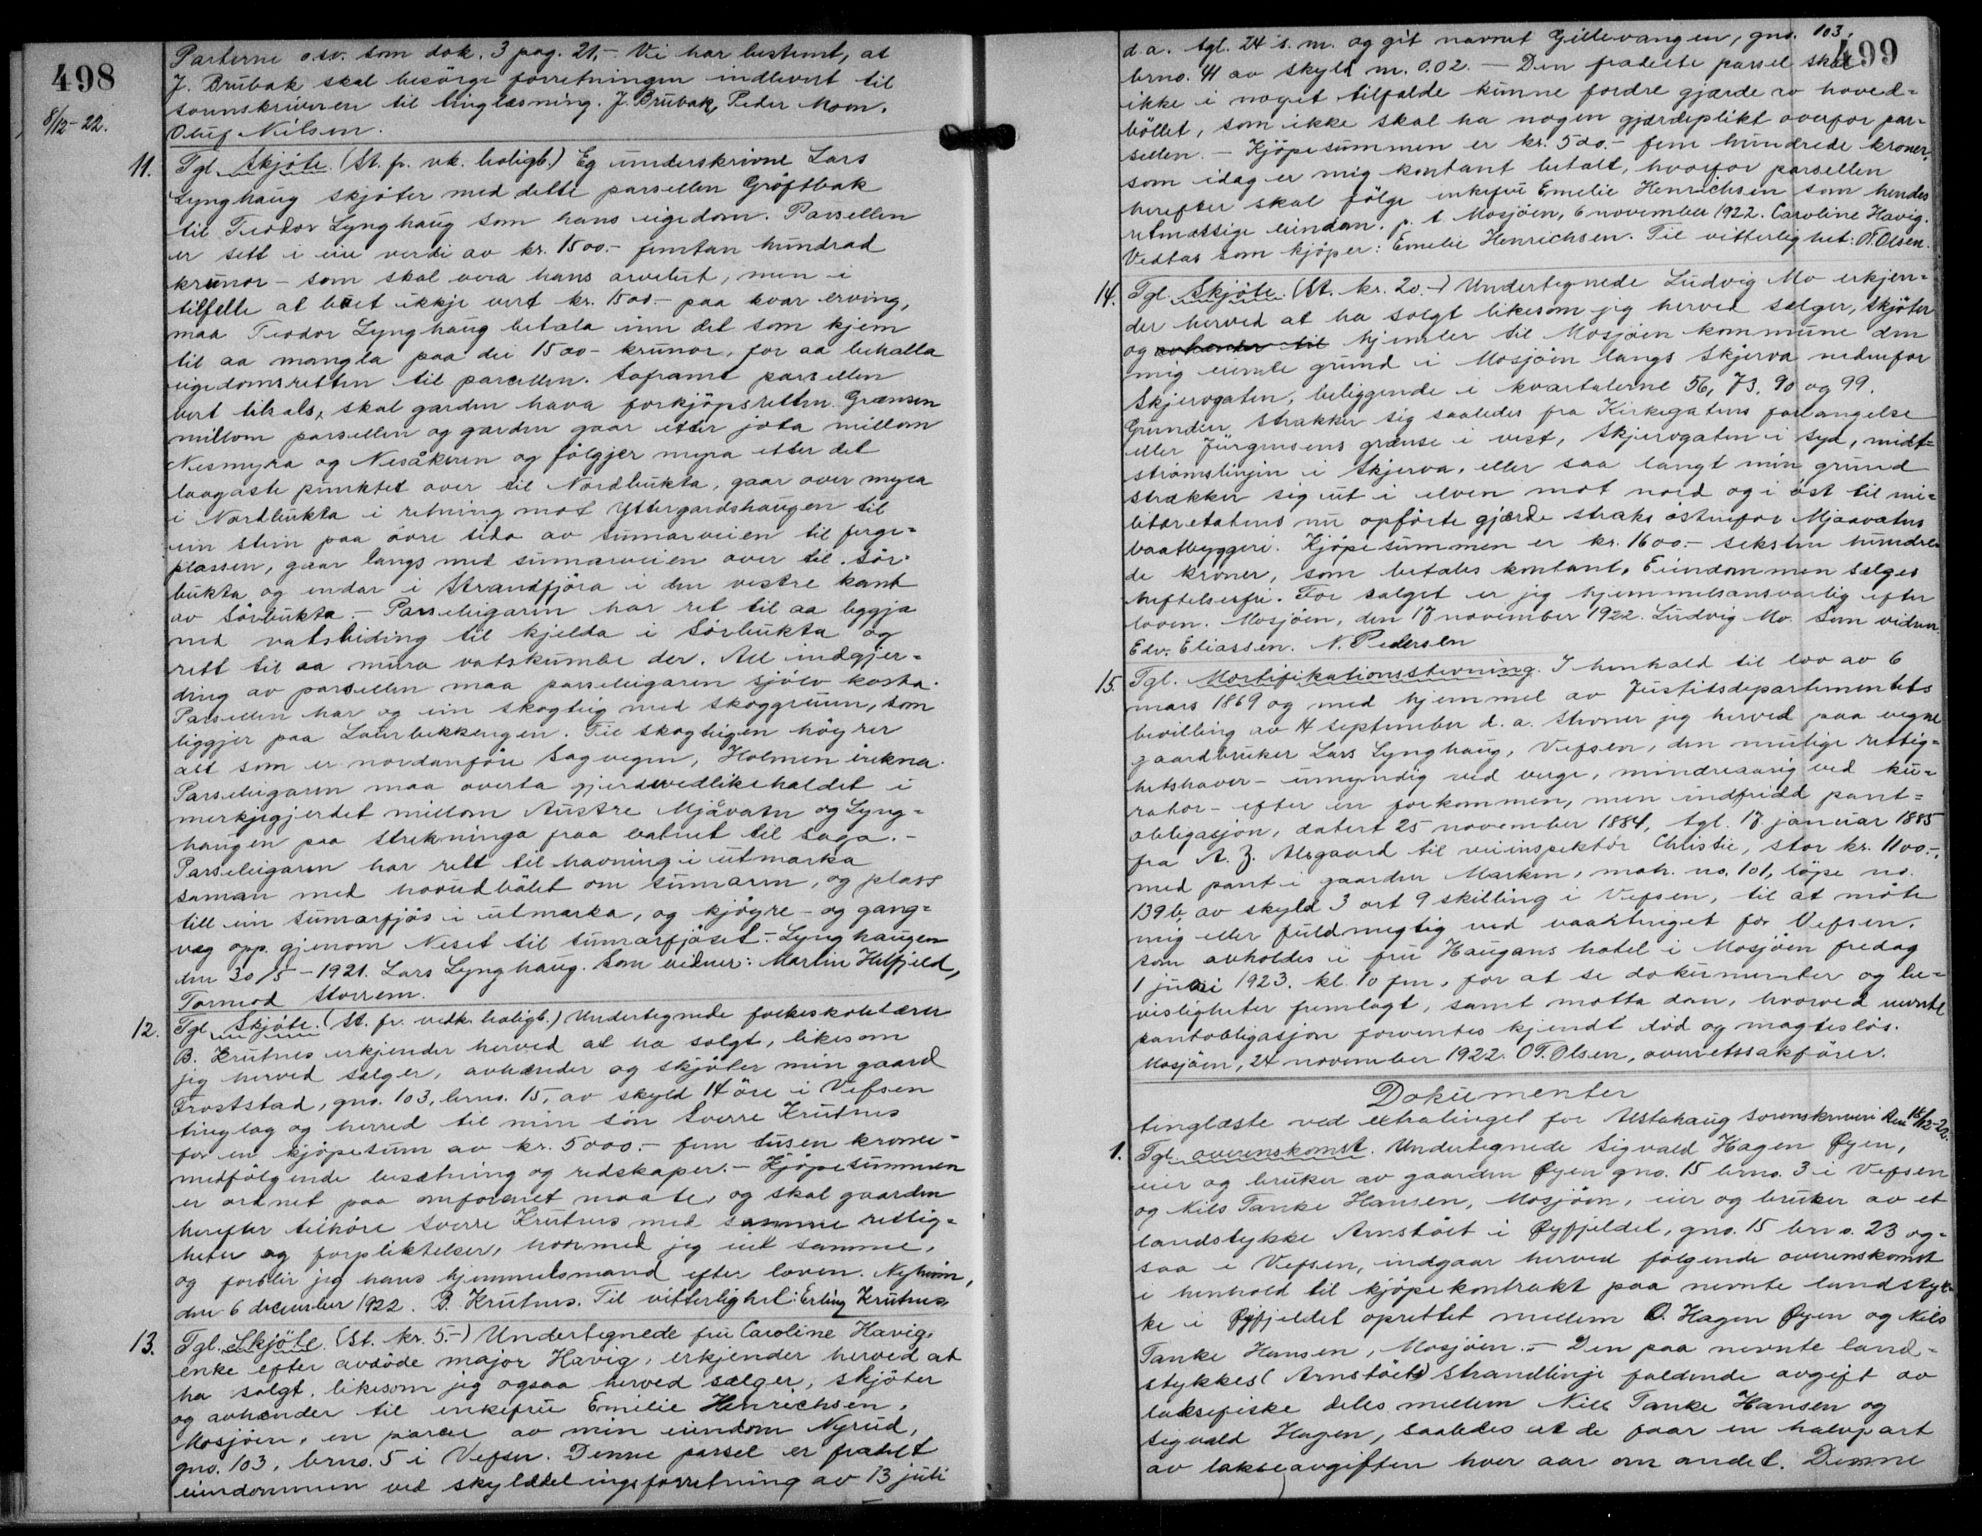 498
8/12-22.
Parterne o.sv. som dok. 3 pag. 21.- Vi har bestemt, at
J. Brubak skal besörge forretningen indlevert til
sorenskriveren til tinglæsning. J. Brubak, Peder Moen.
Oluf Nilsen.
11. Tgl. Skjöte. (St. fr. vk. boligb.) Eg underskrivne Lars
Lynghaug skjöter med dette parsellen Gröftbak
til Teodor Lynghaug som hans eigedom. Parsellen
er sett i ein verdi av kr. 1500.- femtan hundrad
krunor - som skal vera hans arvelut, men i
tilfelle at buet ikkje vert kr. 1500.- paa kvar erving,
maa Teodor Lynghaug betala inn det som kjem
til aa mangla paa dei 1500- krunor, for aa behalla
eigedomsretten til parsellen. Soframt parsellen
vert tilsals, skal garden hava forkjöpsretten. Grensen
millom parsellen og garden gaar etter jota millom
Nesmyra og Nesåkeren og fölgjer myra etter det
laagaste punktet over til Nordbukta, gaar over myra
i Nordbukta i retning mot Yttergardshaugen til
ein stein paa övre sida av sumarveien til ferge=
plassen, gaar langs med sumarveien over til Sör-
bukta og endar i Strandfjöra i den vestre kant
av Sörbukta. - Parseleigaren har ret til aa leggja
ned vatsleiding til kjelda i Sörbukta og
rett til aa mura vatskumbe der. All indgjer=
ding av parsellen maa parseleigaren sjölv kosta.
Parsellen har og ein skogteig med skoggrunn, som
liggjer paa Laurbekkengen. Til skogteigen höyrer
alt som er nordanföre Sagvegen, Holmen irekna.
Parseleigaren maa overta gjerdevedlikehaldet i
merkjegjerdet millom Austre Mjåvatn og Lyng=
haugen paa strekninga fraa vatnet til saga.-
Parseleigaren har rett til havning i utmarka
saman med hovudbölet om sumaren, og plass
till ein sumarfjös i utmarka, og kjöyre- og gang=
veg opp gjenom Neset til sumarfjöset.- Lynghaugen
den 30/5-1921. Lars Lynghaug. Som vidner: Martin Helfjeld,
Tormod Storrem.
12. Tgl. Skjöte. (St. fr. vedk. boligb.) Undertegnede folkeskolelærer
B. Krutnes erkjender herved at ha solgt, likesom
jeg herved sælger, avhænder og skjöter min gaard
Froststad, gno. 103, brno. 15, av skyld 14 öre i Vefsen
tinglag og herred til min sön Sverre Krutnes
for en kjöpesum av kr. 5000.- fem tusen kroner-
medfölgende besætning og redskaper.- Kjöpesummen
er ordnet paa omforenet maate, og skal gaarden
herefter tilhöre Sverre Krutnes med samme rettig=
heter og forpliktelser, hvormed jeg eiet samme,
og forblir jeg hans hjemmelsmand efter loven. Nyheim,
den 6 december 1922. B. Krutnes. Til vitterlighet: Erling Krutnes,
13. Tgl. Skjöte. (St. kr. 5.-) Undertegnede fru Caroline Havig,
enke efter avdöde major Havig, erkjender herved at
ha solgt, likesom jeg ogsaa herved sælger, skjöter
og avhender til enkefru Emelie Henrichsen,
Mosjöen, en parcel av min eiendom Nyrud,
gno. 103, brno. 5 i Vefsn. Denne parsel er fradelt
eiendommen ved skylddelingsforretning av 13 juli
499
d.a. tgl. 24 s.m. og git navnet Gillevangen, gno. 103,
brno. 41 av skyld m. 0.02. - Den fradelte parsel skal
ikke i noget tilfælde kunne fordre gjærde av hoved=
böllet, som ikke skal ha nogen gjærdeplikt overfor par=
sellen. - Kjöpesummen er kr. 500.- fem hundrede kroner,
som idag er mig kontant betalt, hvorfor parsellen
herefter skal fölge enkefru Emelie Henrichsen som hendes
retmæssige eiendom. p.t. Mosjöen, 6 november 1922. Caroline Havig.
Vedtas som kjöper: Emelie Henrichsen. Til vitterlighet: O.T. Olsen.
14. Tgl. Skjöte. (St. kr. 20.-) Undertegnede Ludvig Mo erkjen=
der herved at ha solgt likesom jeg herved sælger, skjöter
og avhender til hjemler til Mosjöen kommune den
mig eiende grund i Mosjöen langs Skjerva nedenfor
Skjervgaten, beliggende i kvartalerne 56, 73, 90 og 99.
Grunden strækker sig saaledes fra Kirkegatens forlængelse
eller Jürgensens grænse i vest, Skjervgaten i syd, midt=
strömslinjen i Skjerva, eller saa langt min grund
strækker sig ut i elven mot nord og i öst til mi=
litæretatens nu opförte gjærde straks östenfor Mjaavatns
baatbyggeri. Kjöpesummen er kr. 1600.- seksten hundre=
de kroner, som betales kontant. Eiendommen sælges
heftelsesfri. For salget er jeg hjemmelsansvarlig efter
loven. Mosjöen, den 17 november 1922. Ludvig Mo. Som vidner
Edv. Eliassen. N. Pedersen
15. Tgl. Mortifikationsstevning. I henhold til lov av 6
mars 1869 og med hjemmel av Justitsdepartementets
bevilling av 4 september d.a. stevner jeg herved paa vegne
gaardbruker Lars Lynghaug, Vefsen, den mulige rettig=
hetshaver - umyndig ved verge, mindreaarig ved ku=
rator - efter en forkommen, men indfridd pant=
obligasjon, datert 25 november 1884, tgl. 17 januar 1885
fra A. Z. Alsgaard til veiinspektör Christie, stor kr. 1100.-,
med pant i gaarden Marken, matr. no. 101, löpe no.
139b, av skyld 3 ort 9 skilling i Vefsen, til at möte
mig eller fuldmegtig ved vaartinget for Vefsen,
som avholdes i fru Haugans hotel i Mosjöen fredag
1 juni 1923. kl. 10 fm, for at se dokumenter og be=
visligheter fremlagt, samt motta dom, hvorved nevnte
pantobligasjon forventes kjendt död og magteslös.
Mosjöen, 24 november 1922. O.T. Olsen, overretssakförer.
Dokumenter
tinglæste ved extratinget for Alstahaug sorenskriveri den 15/12-22.
1. Tgl. overenskomst. Undertegnede Sigvald Hagen Øyen,
eier og bruker av gaarden Øyen gno. 15 brno. 3 i Vefsen
og Nils Tanke Hansen, Mosjöen, eier og bruker av et
landstykke Arnstöit i Øyfjeldet, gno. 15 brno. 23 og=
saa i Vefsen, indgaar herved fölgende overenskomst
i henhold til kjöpekontrakt paa nevnte landstyk=
ke i Øyfjeldet oprettet mellem O. Hagen Øyen og Nils
Tanke Hansen, Mosjöen.- Den paa nevnte land=
stykkes (Arnstöit) strandlinje faldende avgift av
laksefiske deles mellem Nils Tanke Hansen og
Sigvald Hagen, saaledes at de faar en halvpart
av lakseavgiften hver aar om andet. Denne